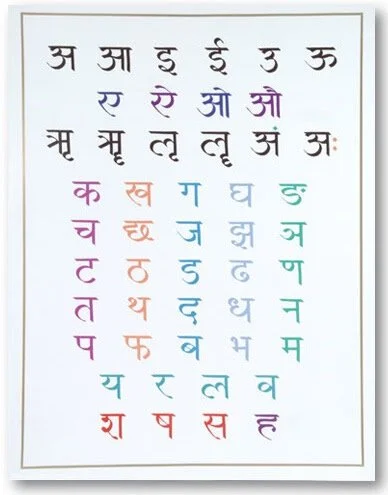 अ आ इ ई उ ऊ
ए ऐ ओ औ
ऋ ॠ ऌ ॡ अं अः
क ख ग घ ङ
च छ ज झ ञ
ट ठ ड ढ ण
त थ द ध न
प फ ब भ म
य र ल व
श ष स ह